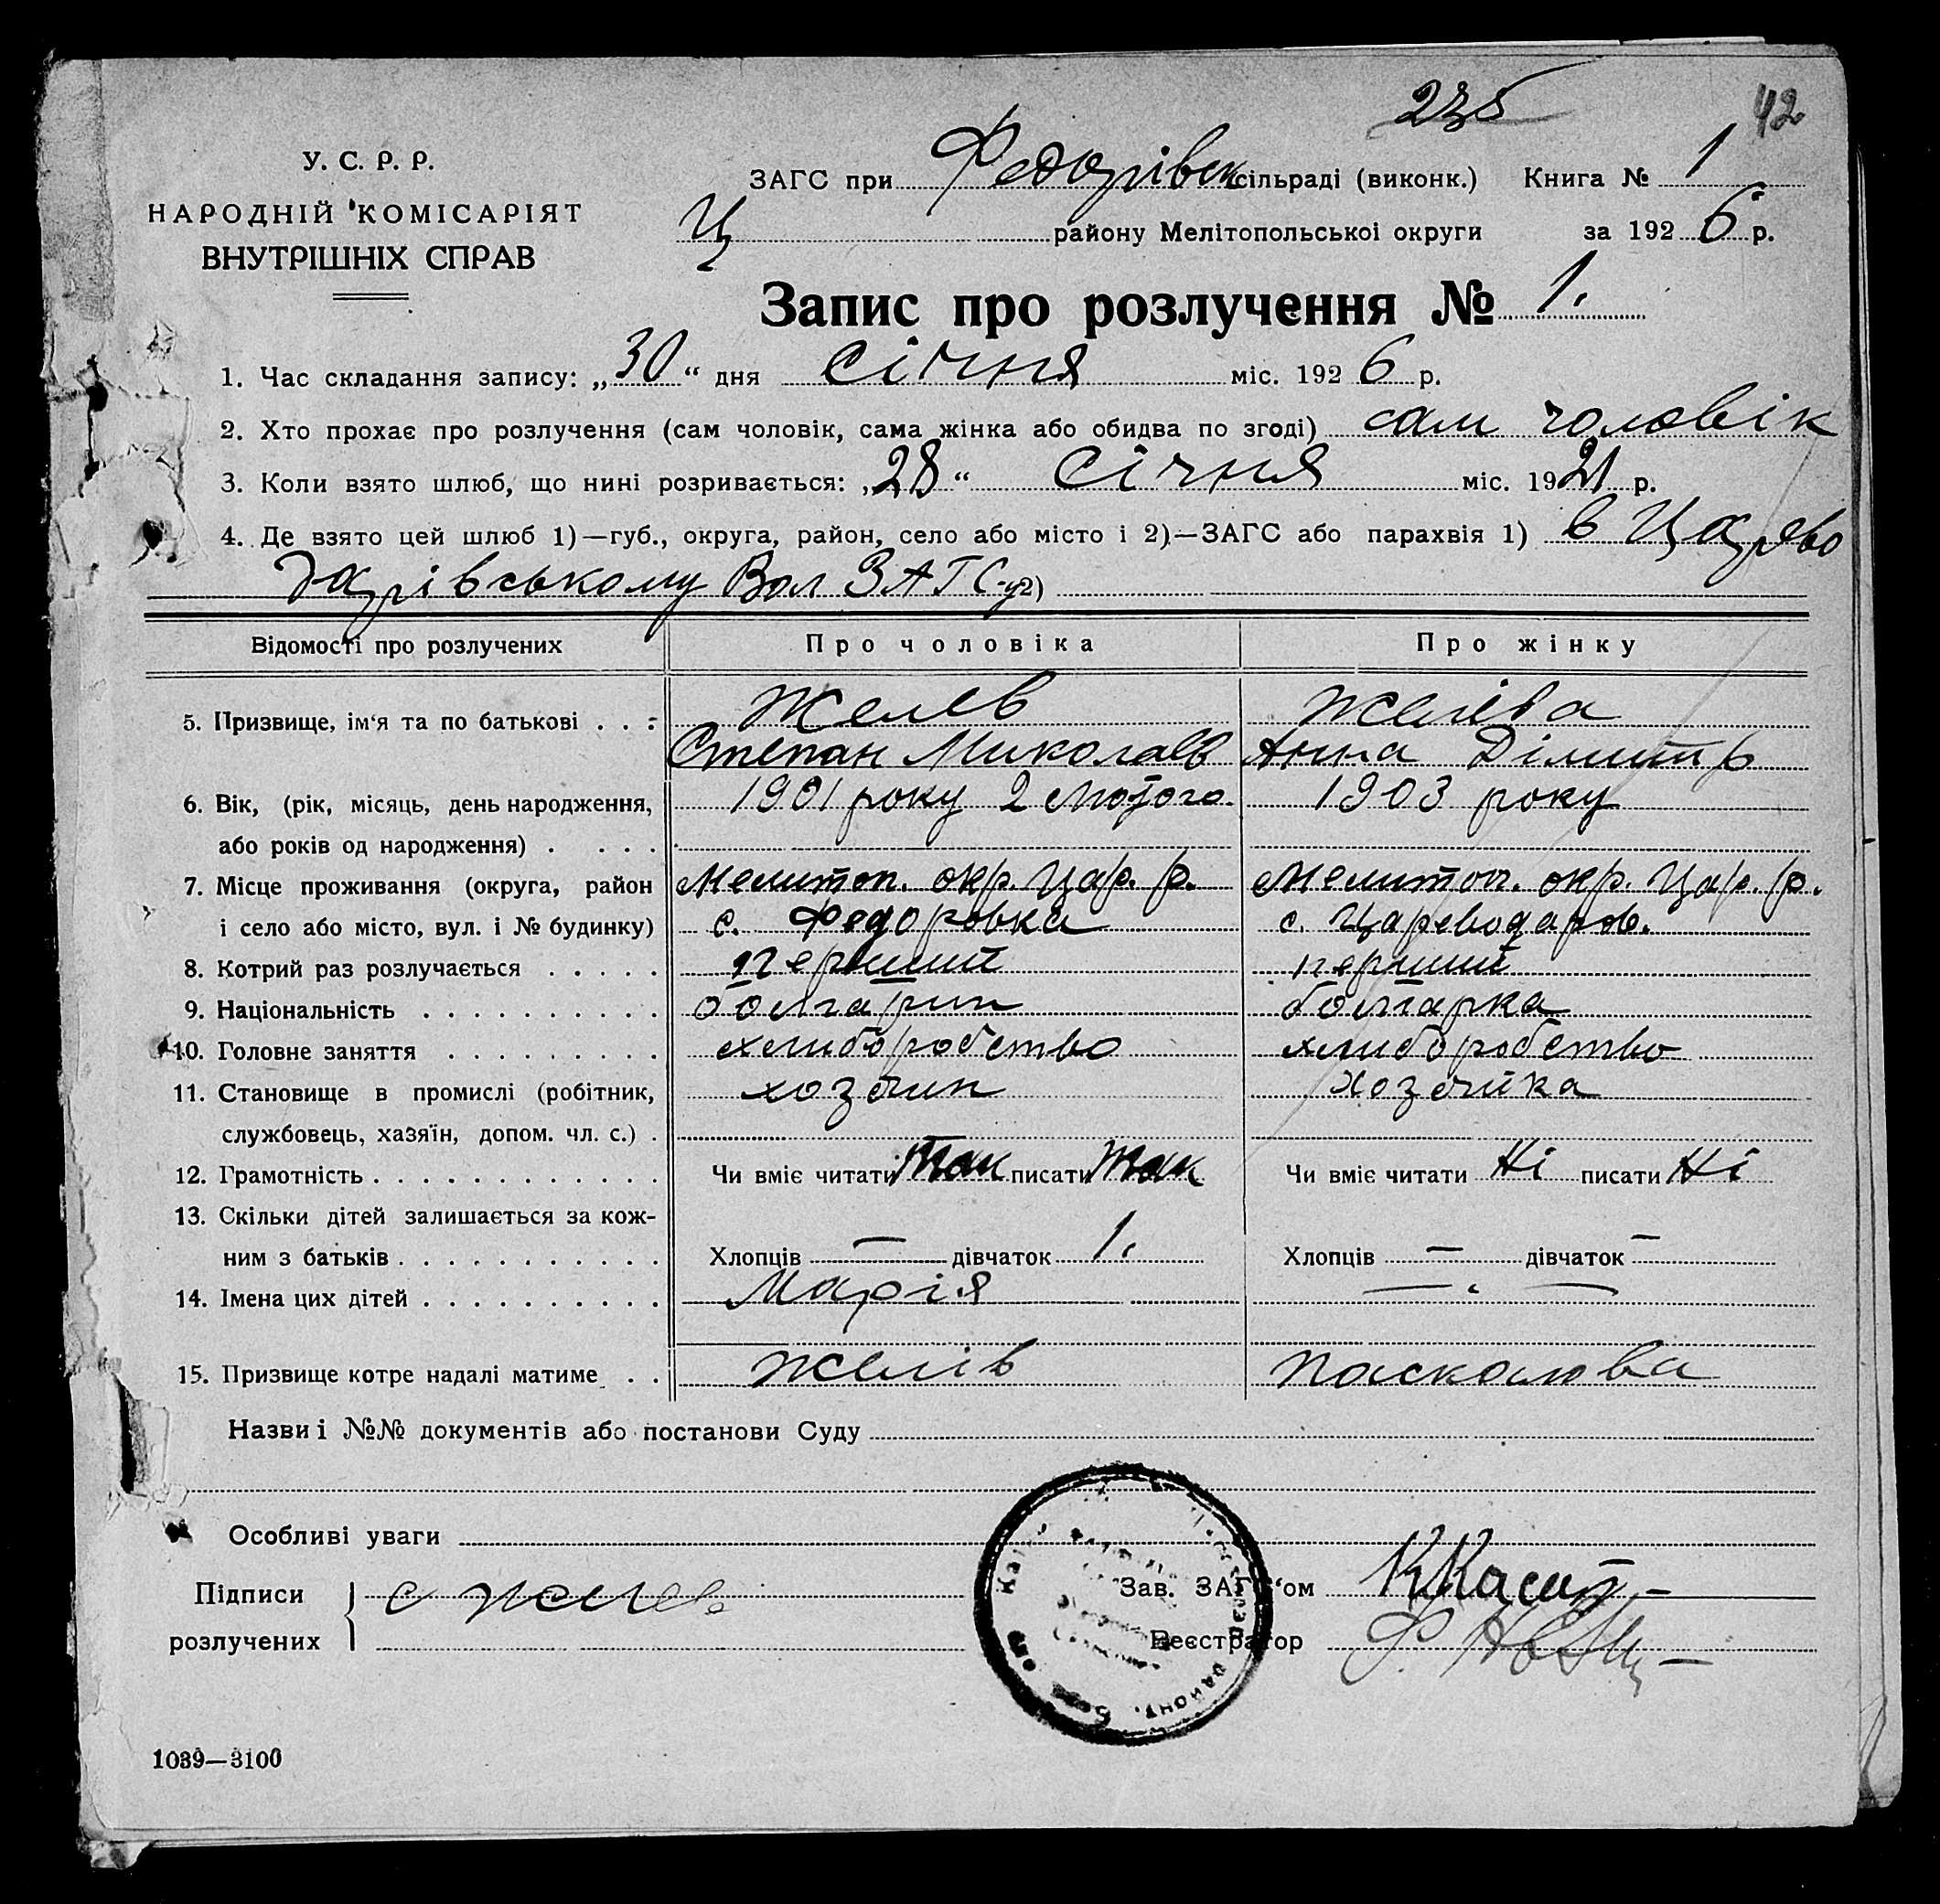 42
У. С. Р. Р.
НАРОДНІЙ КОМІСАРІЯТ
ВНУТРІШНІХ СПРАВ
ЗАГС при Федорівск сільраді (виконк.) Книга № 1
Ц району Мелітопольської округи за 1926 р.
Запис про розлучення № 1.
1. Час складання запису: „30“ дня Січня міс. 1926 р.
2. Хто прохає про розлучення (сам чоловік, сама жінка або обидва по згоді) сам чоловік
3. Коли взято шлюб, що нині розривається: „28“ Січня міс. 1921 р.
4. Де взято цей шлюб 1)—губ., округа, район, село або місто і 2)—ЗАГС або парахвія 1) в Царево
дарівському Вол ЗАГС-у 2)
Відомості про розлучених Про чоловіка Про жінку
5. Призвище, ім‘я та по батькові . . . Желев Желіва
Степан Миколаєв Анна Дімитр
6. Вік, (рік, місяць, день народження, 1901 року 2 Лютого. 1903 року
або років од народження) . . . .
7. Місце проживання (округа, район Мелитоп. окр. Цар. р. Мелитоп. окр. Цар. р.
і село або місто, вул. і № будинку) с. Федоровка с. Цареводаров.
8. Котрий раз розлучається . . . . . перший перший
9. Національність . . . . . . . . . . болгарин болгарка
10. Головне заняття . . . . . . . . . хлиборобство хлиборобство
11. Становище в промислі (робітник, хозяин хозяйка
службовець, хазяїн, допом. чл. с.) .
12. Грамотність . . . . . . . . . . . . Чи вміє читати Так писати Так Чи вміє читати Ні писати Ні
13. Скільки дітей залишається за кож-
ним з батьків . . . . . . . . . . . Хлопців — дівчаток 1. Хлопців — дівчаток —
14. Імена цих дітей . . . . . . . . . . Марія — „ —
15. Призвище котре надалі матиме . . Желів Паскалова
Назви і №№ документів або постанови Суду
Особливі уваги
Підписи с Желев Зав. ЗАГС‘ом
розлучених Реєстратор
району
1039—3100